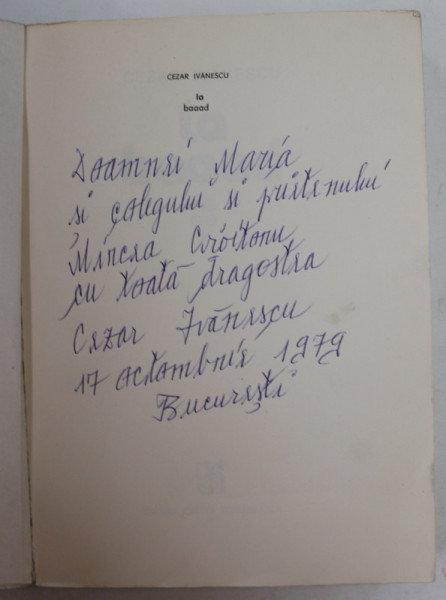 CEZAR IVĂNESCU
la
baaad
Doamnei Maria
și colegului și prietenului
Mircea Croitoru
cu toată dragostea
Cezar Ivănescu
17 octombrie 1979
București